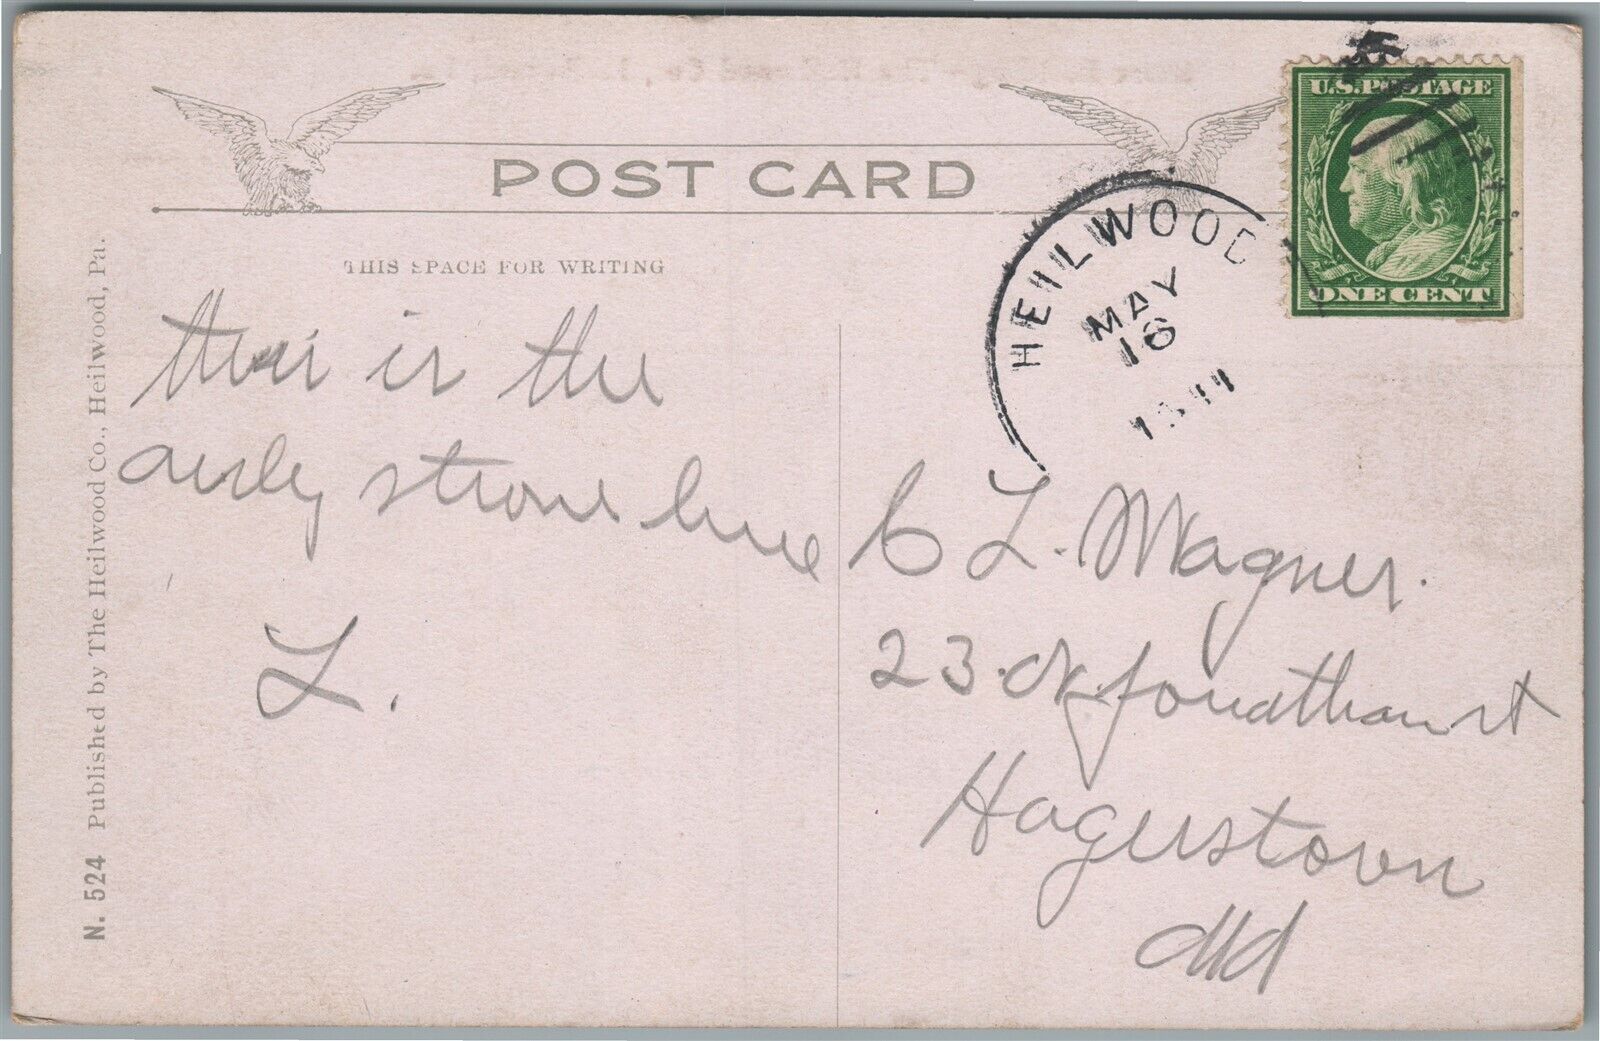 POST CARD
U.S. POSTAGE
ONE CENT
HEILWOOD
MAY
16
1911
THIS SPACE FOR WRITING
this is the
only strore here
L.
C L. Wagner.
23. N. Jonathan st
Hagerstown
Md
N. 524 Published by The Heilwood Co., Heilwood, Pa.